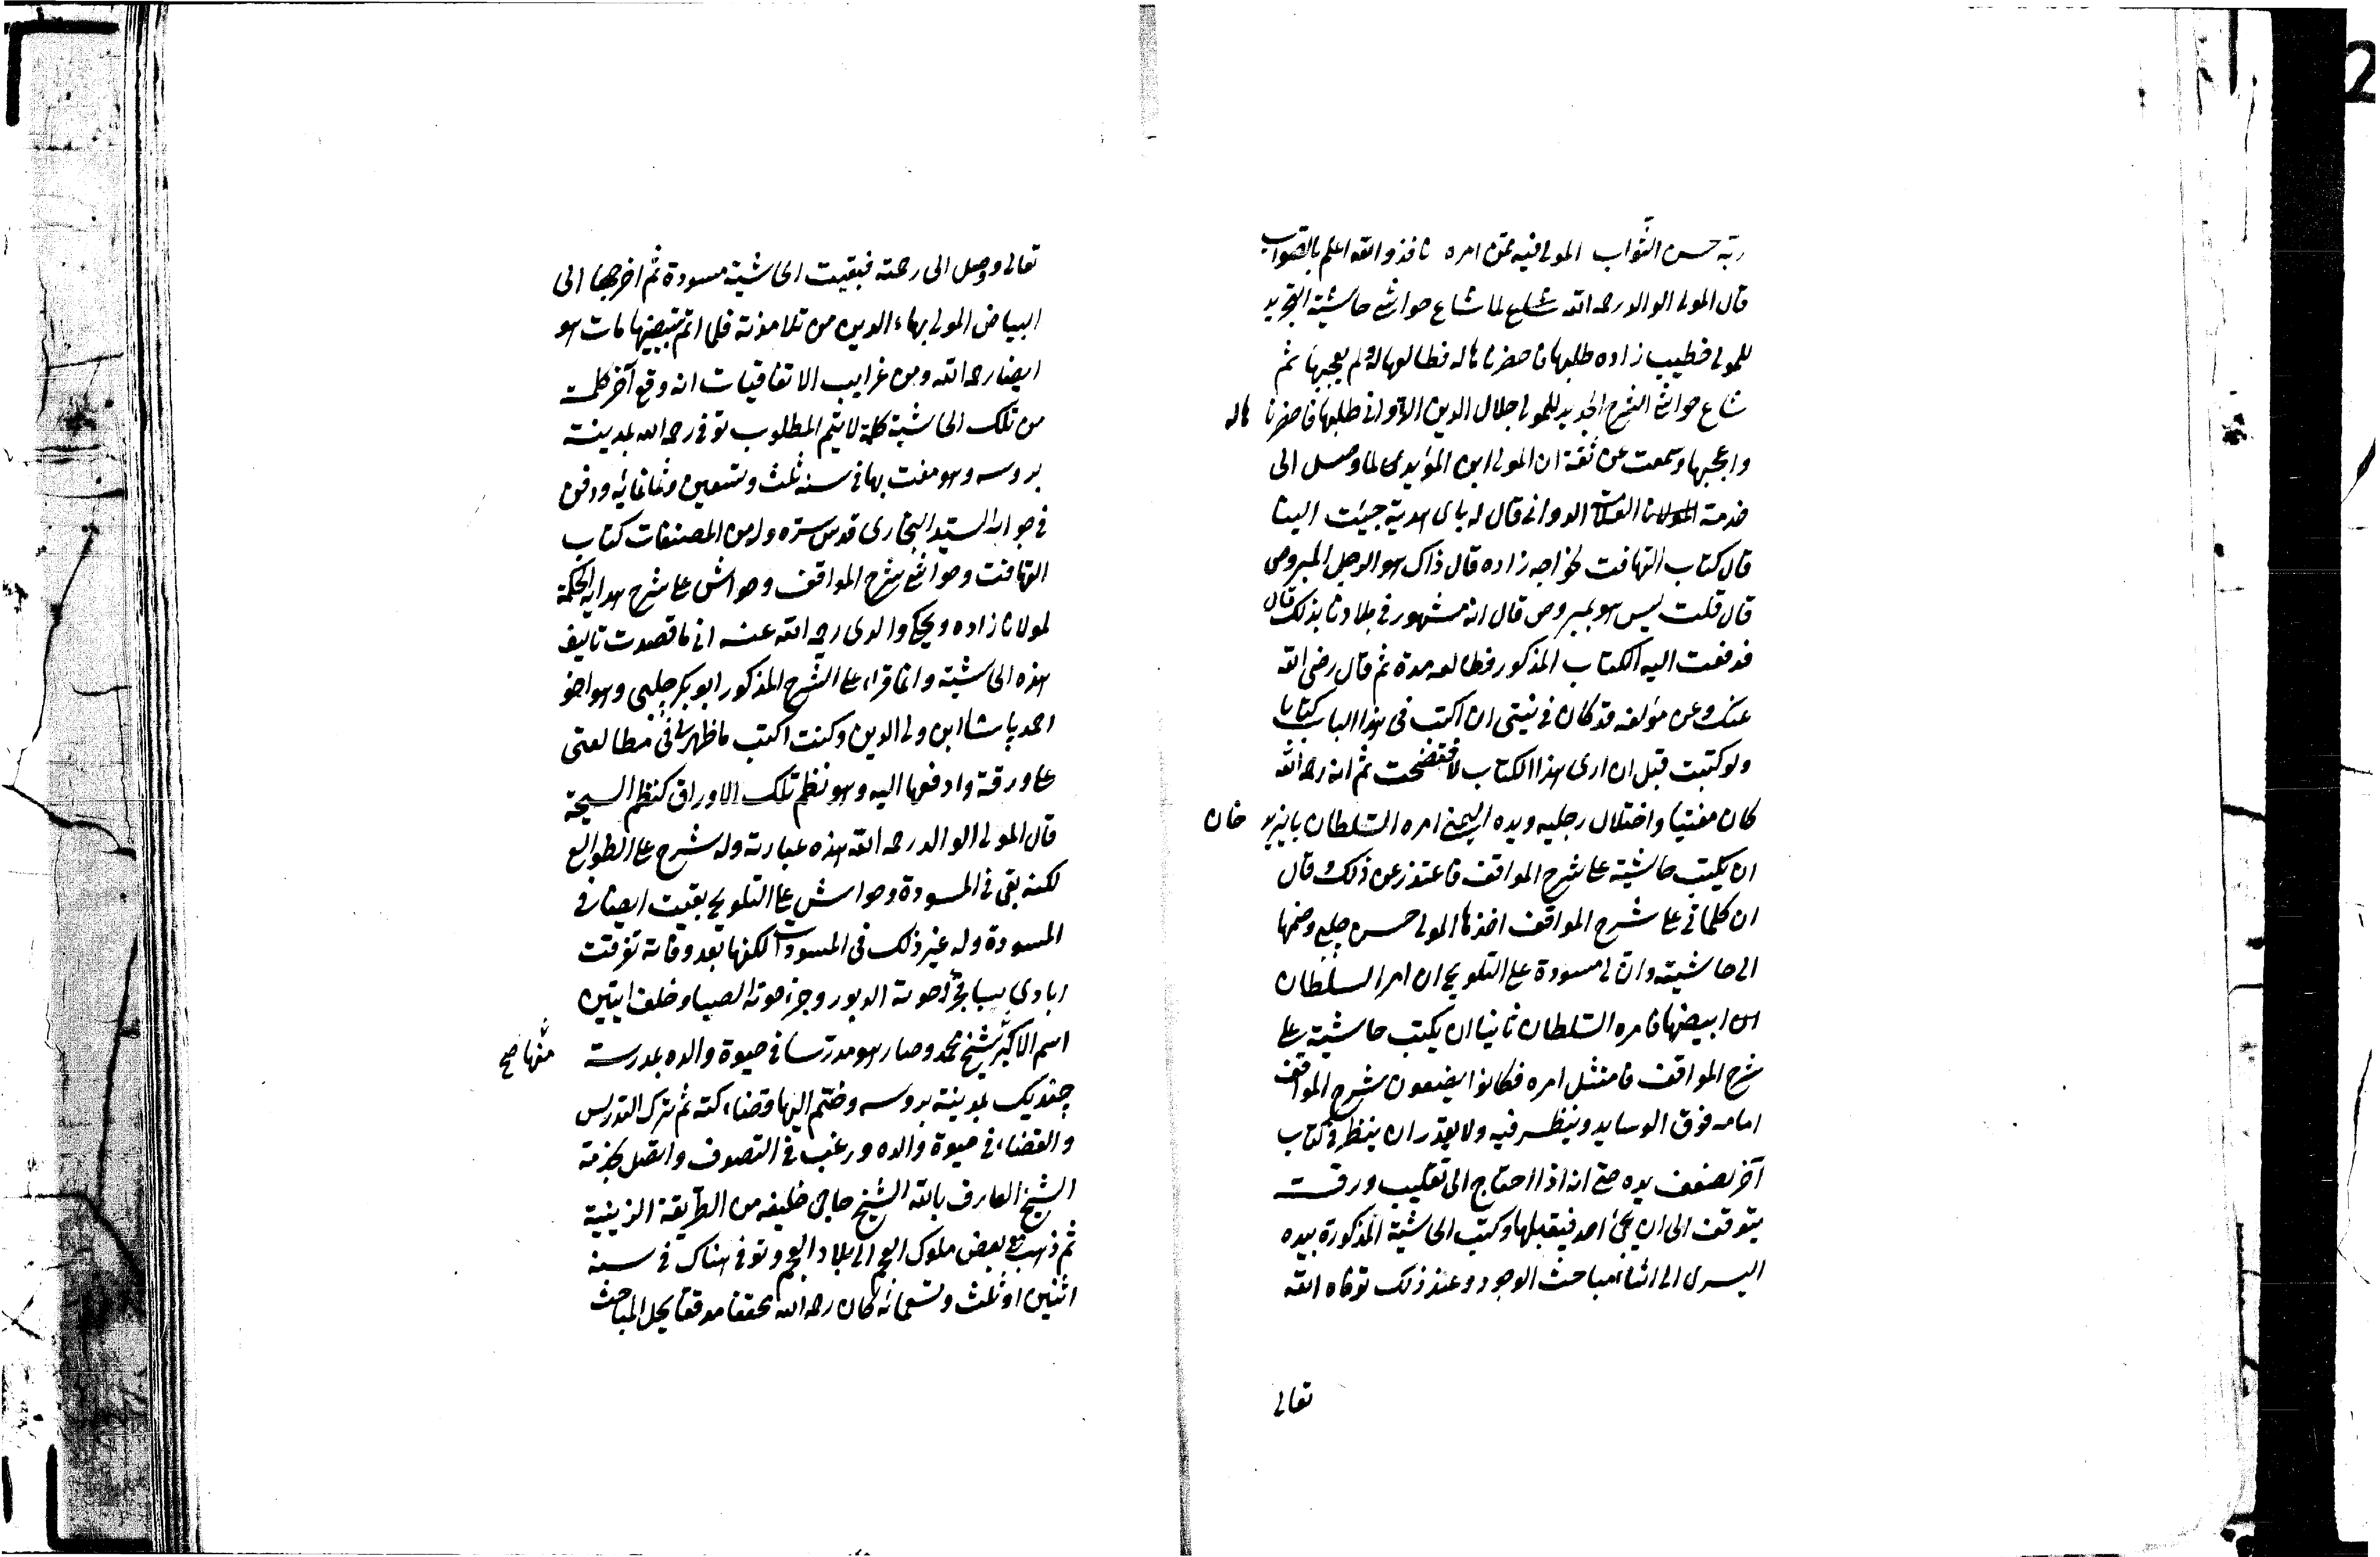 ربه حسن الثواب المولى فيه بمن امره نافذ والله اعلم بالصواب
قال المولى الوالد رحمه الله لما شاع حواشى حاشية التجريد
للمولى خطيب زاده طلبها فاحضرناها له فطالعها ولم يعجبها ثم
شاع حواشى الشرح الجديد للمولى جلال الدين الدوانى طلبها فاحضرناها له
واعجبها وسمعت عن ثقة ان المولى ابن المؤيدى لما وصل الى
خدمة العلامة الدوانى قال له باى هدية جيئت الينا
قال كتاب التهافت لخواجه زاده قال ذاك هو الرجل المبروص
قال قلت ليس هو بمبروص قال انه مشهور فى بلادنا بذلك قال
فدفعت اليه الكتاب المذكور فطالعه مدة ثم قال رضى الله
عنك وعن مؤلفه قد كان فى نيتى ان اكتب فى هذا الباب كتابا
ولو كتبت قبل ان ارى هذا الكتاب لافتضحت ثم انه رحمه الله
كان مفتيا واختلال رجليه ويده اليمنى امره السلطان بايزيد خان
ان يكتب حاشية على شرح المواقف فاعتذر عن ذلك وقال
ان كلماتى على شرح المواقف اخذها المولى حسن چلبى وضمها
الى حاشيته وان لى مسودة على التلويح ان امر السلطان
ان ابيضها فامره السلطان ثانيا ان يكتب حاشية على
شرح المواقف فامتثل امره فكانوا يضعون شرح المواقف
امامه فوق الوسايد وينظر فيه ولا يقدر ان ينظر فى كتاب
آخر لضعف يده حتى انه اذا احتاج الى تقليب ورقة
يتوقف الى ان يجئ احد فيقبلها وكتب الحاشية المذكورة بيده
اليسرى الى اثناء مباحث الوجود وعند ذلك توفاه الله
تعالى
تعالى ووصل الى رحمته فبقيت الحاشية مسودة ثم اخرجها الى
البياض المولى بهاء الدين من تلامذته فلما اتم تبييضها مات هو
ايضا رحمه الله ومن غرايب الاتفاقيات انه وقع آخر كلمة
من تلك الحاشية كلمة لا يتم المطلوب توفى رحمه الله بمدينة
بروسه وهو مفت بها فى سنه ثلث وتسعين وثمانمائه ودفن
فى جوار السيد البخارى قدس سره وله من المصنفات كتاب
التهافت وحواشى شرح المواقف وحواش على شرح هداية الحكمة
لمولانا زاده ويحكى والدى رحمه الله عنه انى ما قصدت تاليف
هذه الحاشية وانما قراء على الشرح المذكور ابو بكر چلبى وهو اخو
احمد پاشا ابن ولى الدين وكنت اكتب ما ظهر لى فى مطالعتى
على ورقة وادفعها اليه وهو نظم تلك الاوراق كنظم السبحة
قال المولى الوالد رحمه الله هذه عبارته وله شرح على الطوالع
لكنه بقى فى المسودة وحواش على التلويح بقيت ايضا فى
المسودة وله غير ذلك فى المسودات لكنها بعد وفاته تفرقت
ايادى سبا فجزء حوته الدبور وجزء حوته الصبا وخلف ابنين
اسم الاكبر منهما شيخ محمد وصار هو مدرسا فى حيوة والده بمدرسة
چنديك بمدينة بروسه وضم اليها قضاء كته ثم ترك التدريس
والقضاء فى حيوة والده ورغب فى التصوف واتصل بخدمة
الشيخ العارف بالله الشيخ حاجى خليفه من الطريقة الزينية
ثم ذهب مع بعض ملوك العجم الى بلاد العجم وتوفى هناك فى سنة
اثنين او ثلث وتسعمائه كان رحمه الله محققا مدققا يحل المباحث